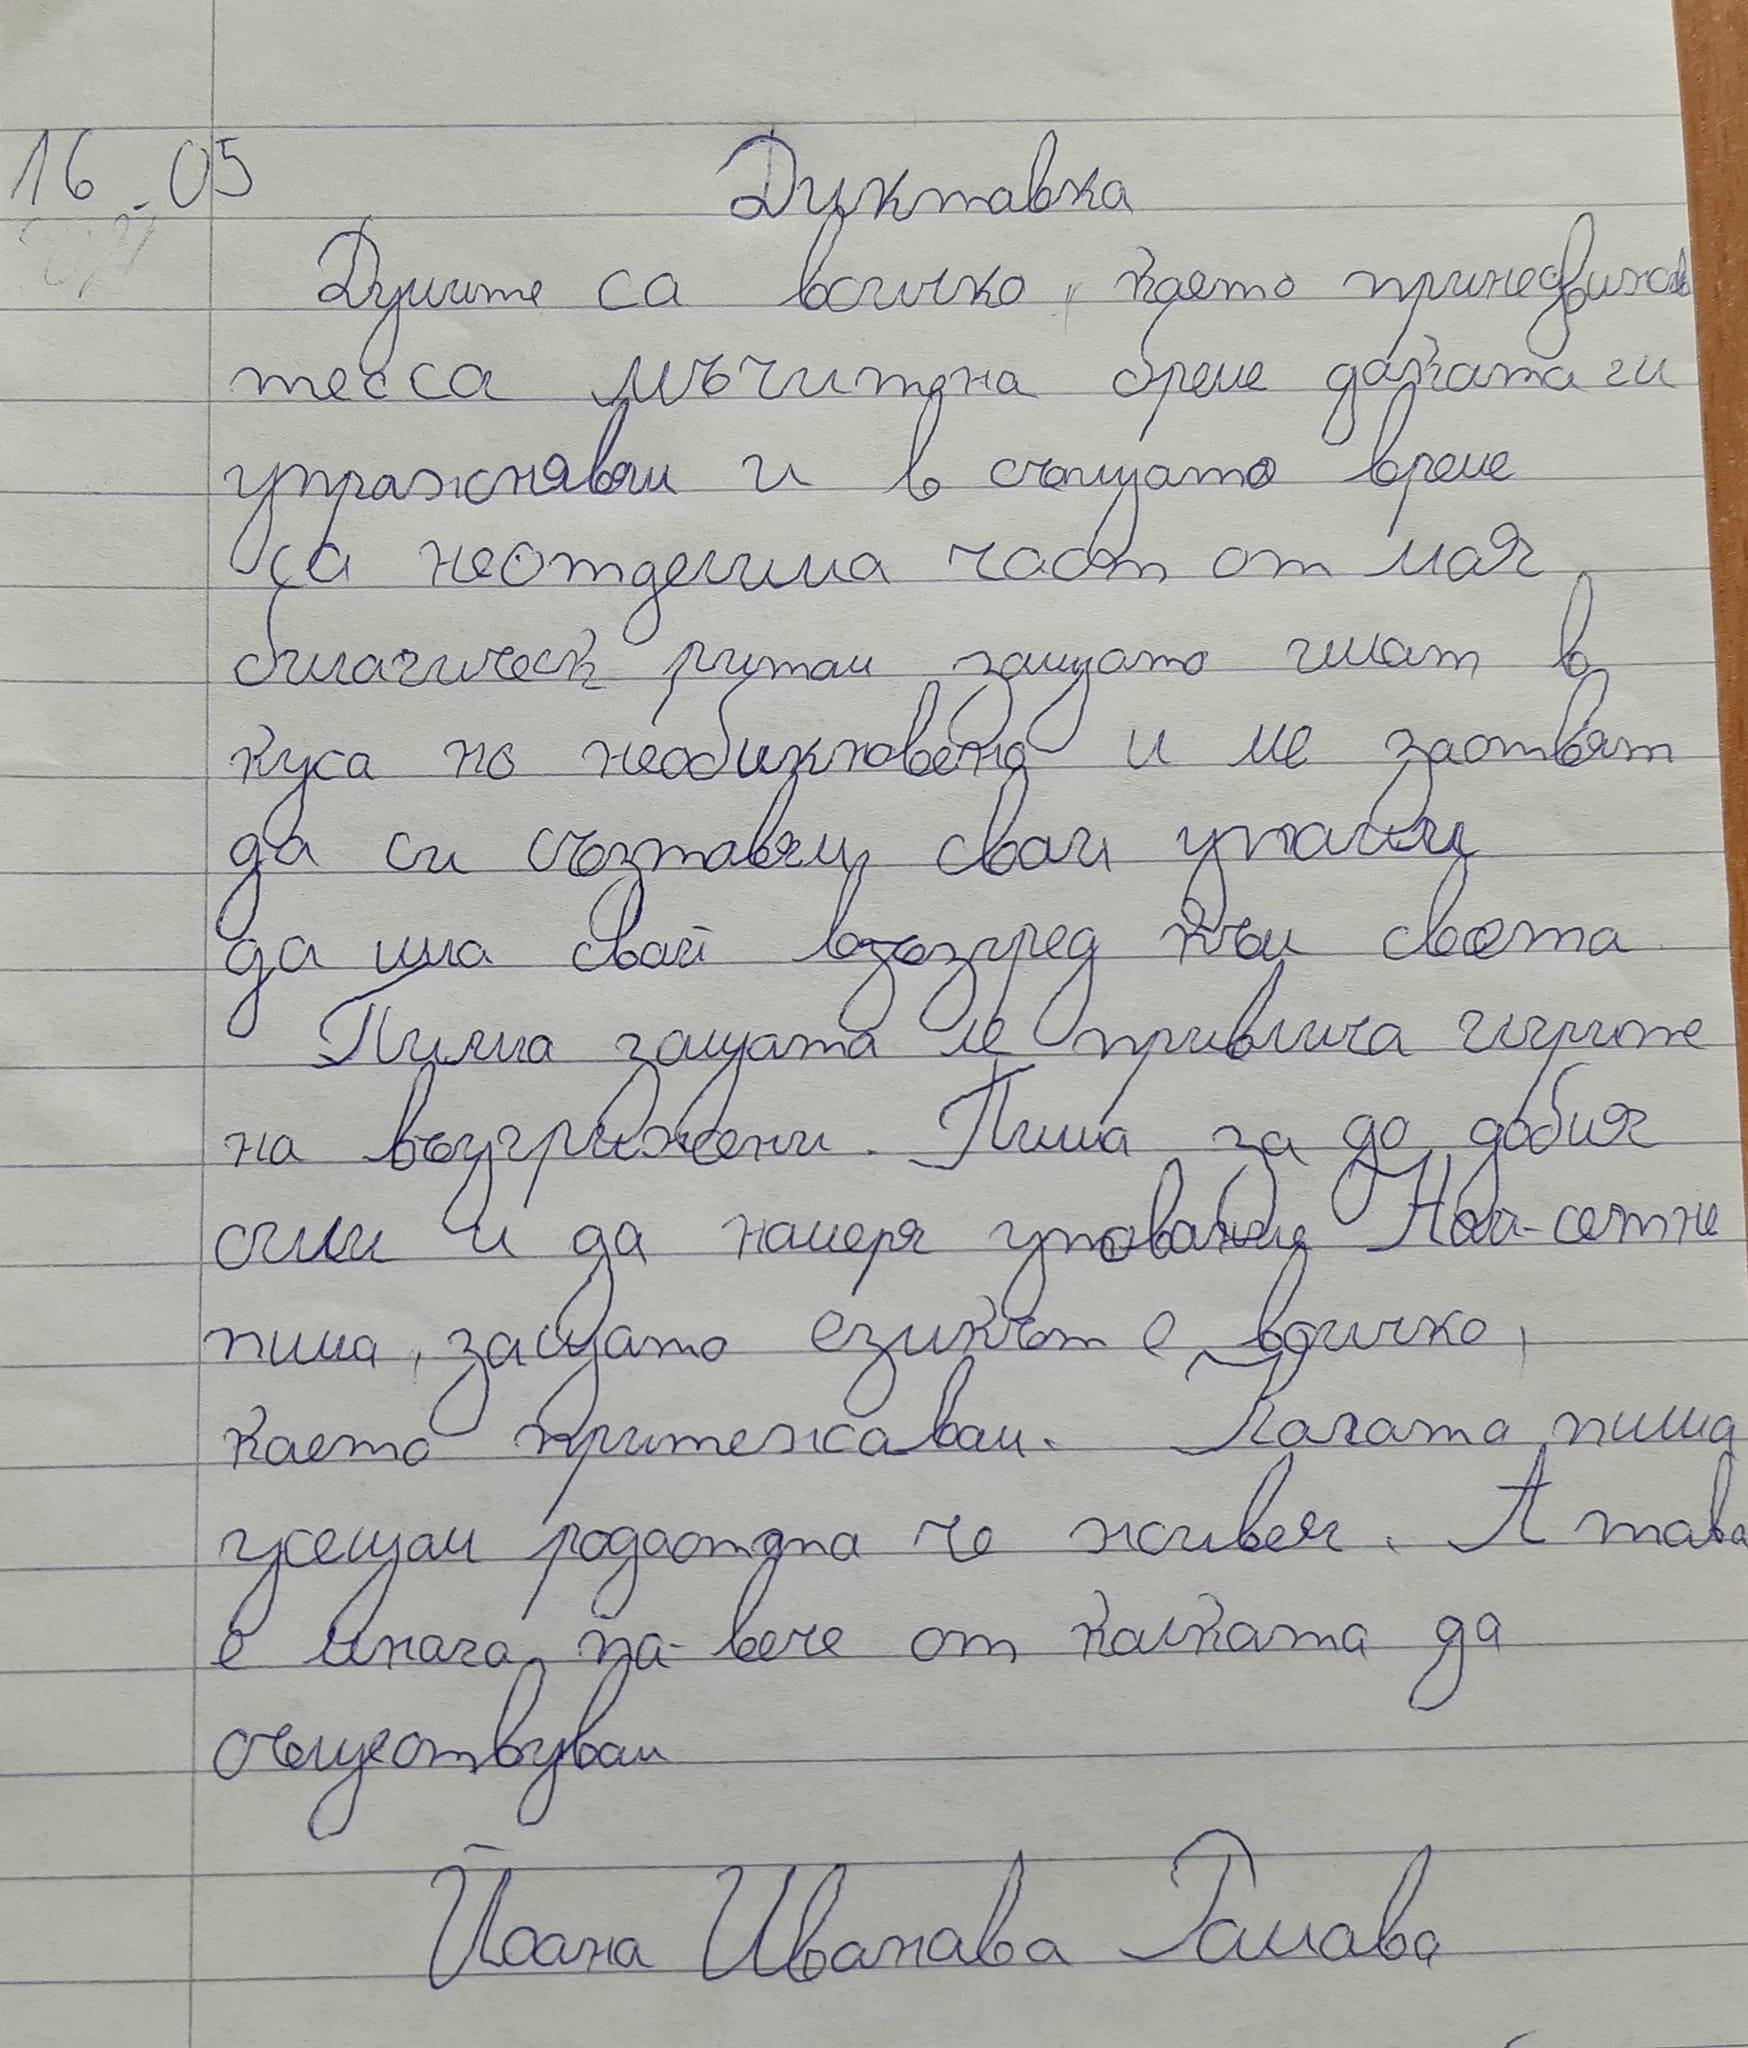 16.05
Диктовка
Думите са всичко, което
тесса мъчителна бреме докато ги
упражнявам и в същото време
са неотделима част от моя
биологическ ритъм защото имат в
куса но необикновено и ме заствят
да си съзтавям свои
да има свой възглед към света
Пиша защото ме привлича игрите
на въображени. Пиша за да добия
сили и да намеря упование Най-сетне
пиша, защото езикът е всичко,
което притежавам. Когато пиша
усещам радостта че живея. А това
е много по-вече от колкото да
съществувам
Йоана Иванова